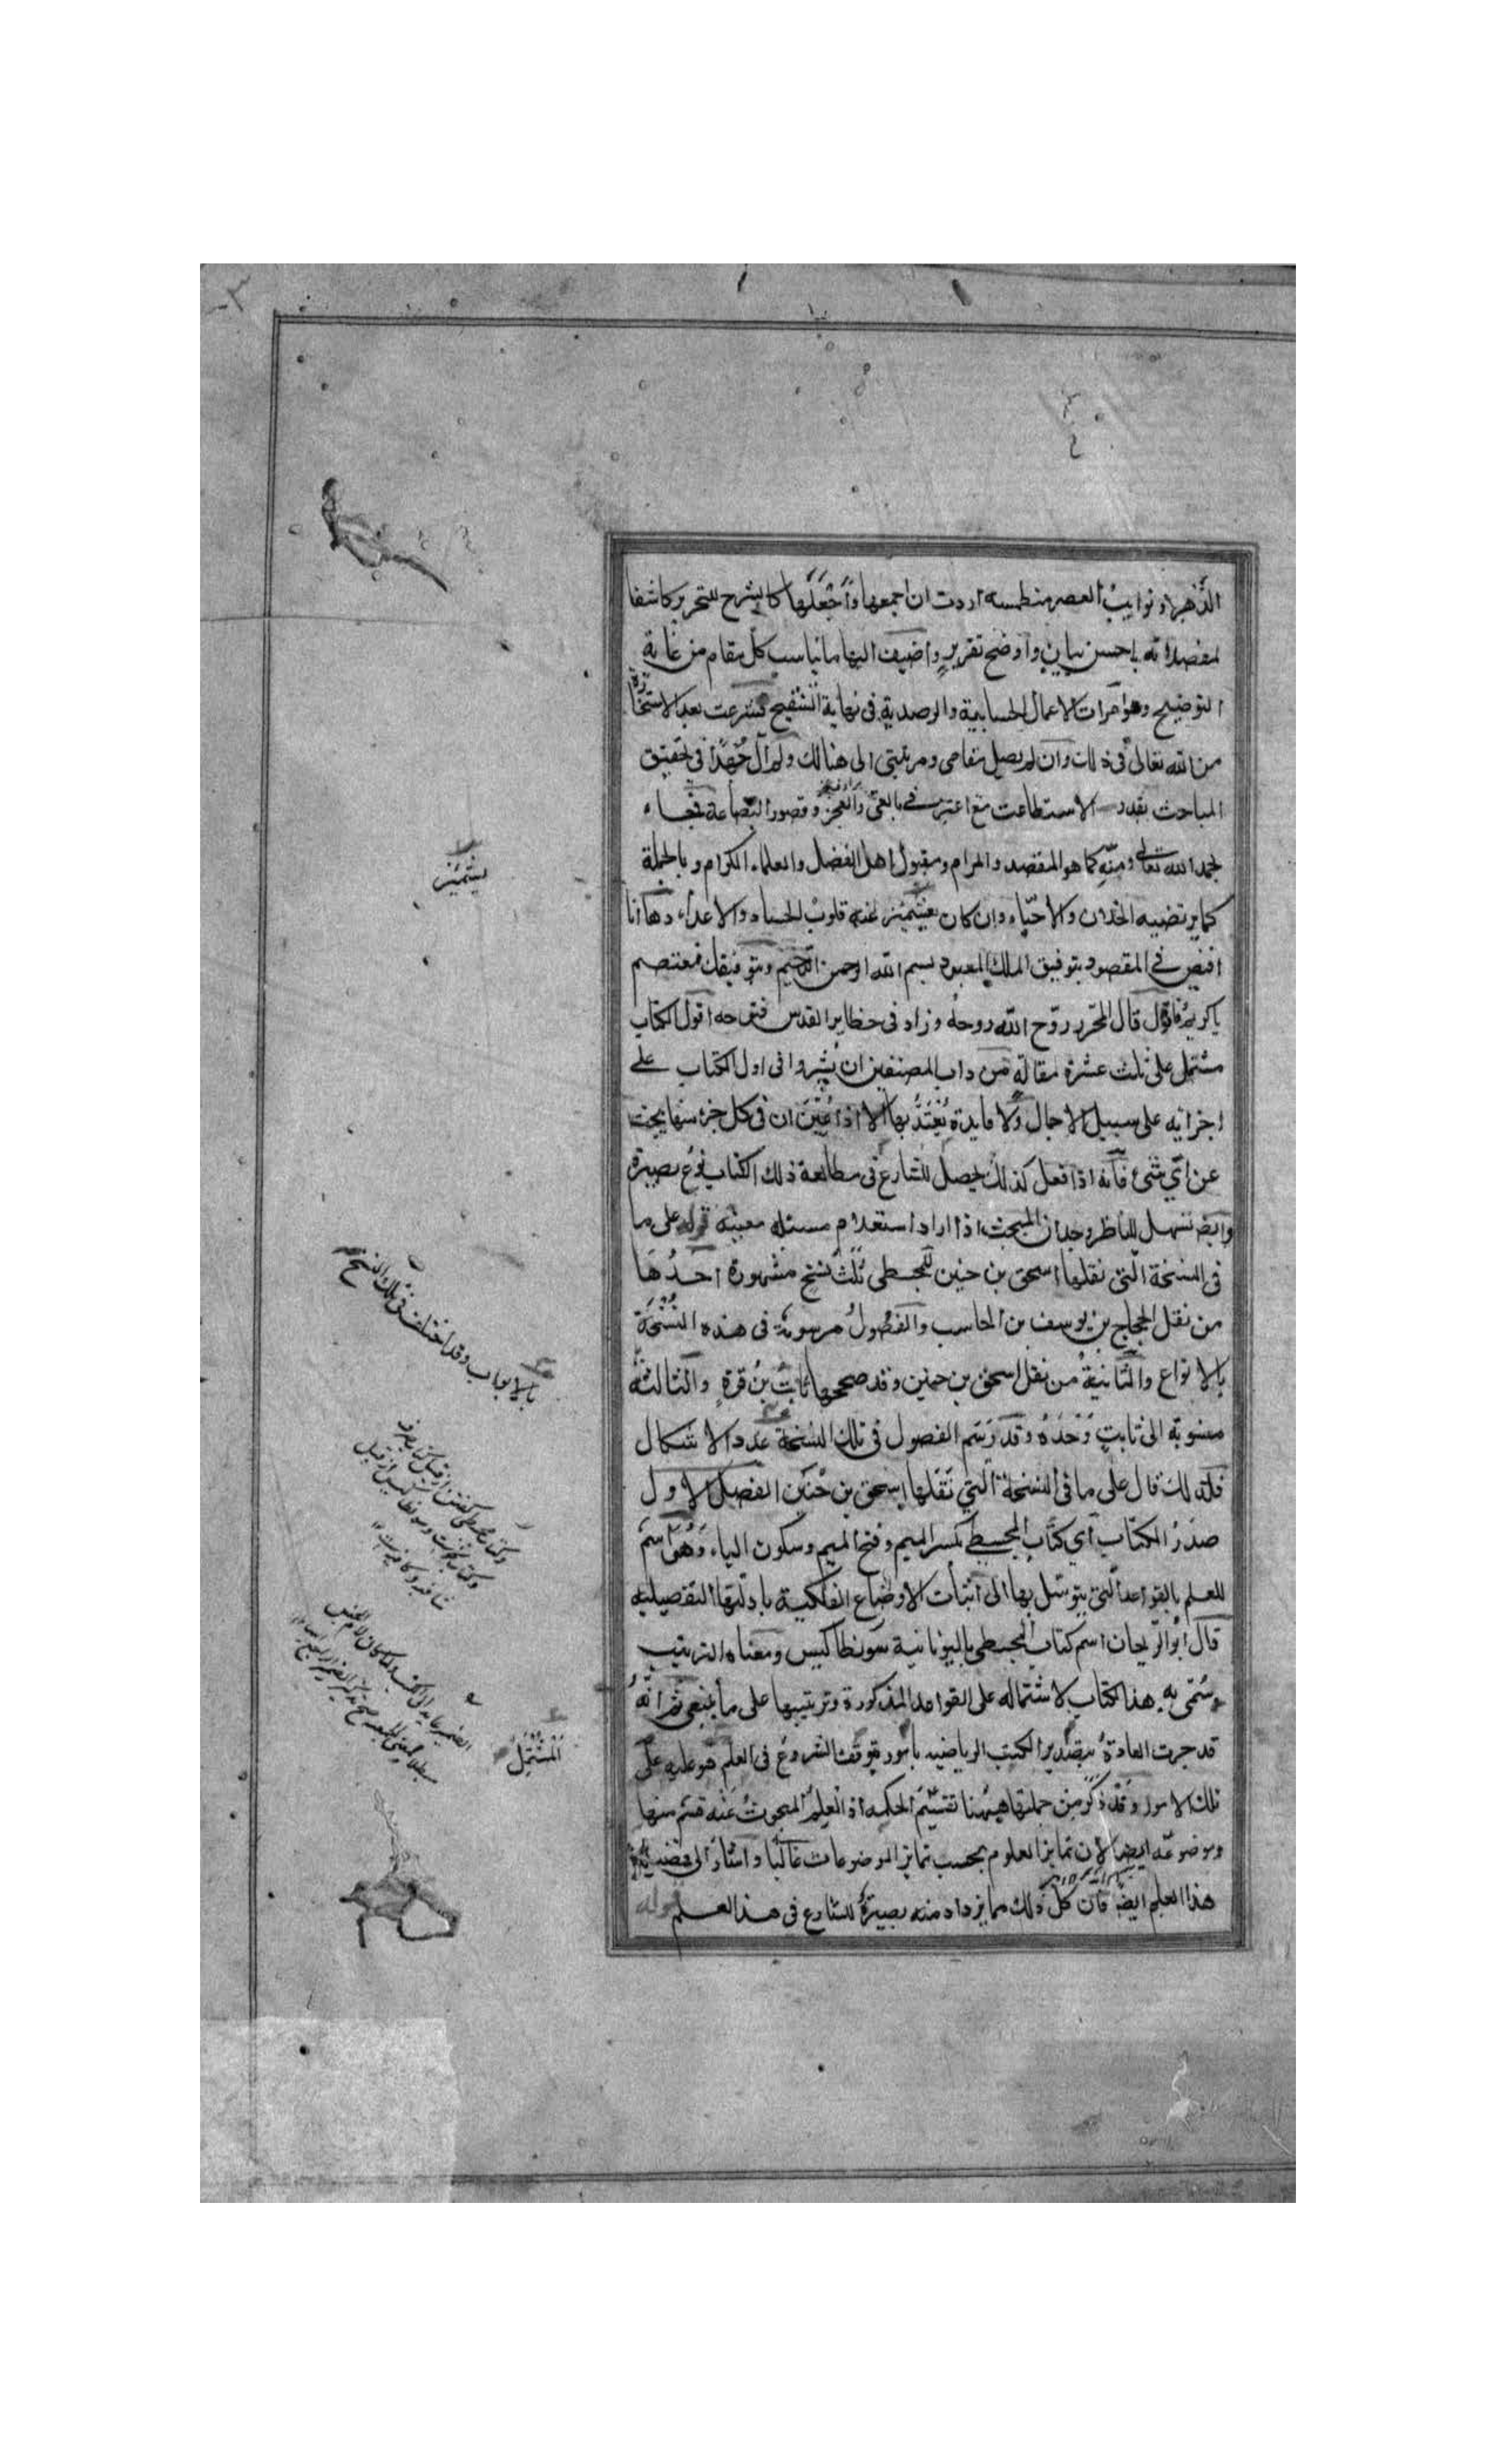 الدهر و نوايب العصر منطمسه اردت ان اجمعها و اجعلها كالشرح للتحرير كاشفا
لمقصداته باحسن بيان و اوضح تقرير و اضيف اليها ما يناسب كل مقام من غاية
التوضيح و هو امرات الاعمال الحسابية و الرصدية فى نهاية التنقيح فشرعت بعد الاستخارة
من الله تعالى فى ذلك و ان لم يصل مقامى و مرتبتى الى هنالك و لم آل جهدا فى تحقيق
المباحث بقدر الاستطاعت مع اعترافى بالعى و العجز و قصور البضاعة فجاء
بحمد الله تعالى و منه كما هو المقصد و المرام و مقبول اهل الفضل و العلماء الكرام و بالجملة
كما يرتضيه الخلان و الاحباء و ان كان يشمئز عنه قلوب الحساد و الاعداء و ها انا
افيض فى المقصود بتوفيق الملك المعبود بسم الله الرحمن الرحيم و بتوفيقك نعتصم
يا كريم فاقول قال المحرر روح الله روحه و زاد فى حظاير القدس فتوحه اقول الكتاب
مشتمل على ثلث عشرة مقالة من داب المصنفين ان يشيروا فى اول الكتاب على
اجزائه على سبيل الاجمال و لا فايدة يعتد بها الا اذا عين ان فى كل جزء منها يبحث
عن اى شئ فانه اذا فعل كذلك يحصل للشارع فى مطالعة ذلك الكتاب نوع بصيرة
و ايضا تسهل للناظر وجدان المبحث اذا اراد استعلام مسئله معينه قوله على ما
فى النسخة التى نقلها اسحق بن حنين للمجسطى ثلث نسخ مشهورة احدها
من نقل الحجاج بن يوسف بن الحاسب و الفصول مرسومة فى هذه النسخة
بالانواع و الثانية من نقل اسحق بن حنين و قد صححها ثابت بن قرة و الثالثة
منسوبة الى ثابت وحده و قد رسم الفصول فى تلك النسخة عدد الاشكال
فلذلك قال على ما فى النسخة التى نقلها اسحق بن حنين الفصل الاول
صدر الكتاب اى كتاب المجسطى بكسر الميم و فتح الميم و سكون الياء و هو اسم
للعلم بالقواعد التى يتوسل بها الى اثبات الاوضاع الفلكية بادلتها التفصيليه
قال ابو الريحان اسم كتاب المجسطى باليونانية سونطاكسيس و معناه الترتيب
و سمى به هذا الكتاب لاشتماله على القواعد المذكورة و ترتيبها على ما ينبغى ثم انه
قد جرت العادة بتصدير الكتب الرياضيه بامور يتوقف الشروع فى العلم هو عليه على
تلك الامور و قد ذكر من جملتها هيهنا تقسيم الحكمه اذ العلم المبحوث عنه قسم منها
و موضوعه ايضا لان تمايز العلوم بحسب تمايز الموضوعات غالبا و اشار الى فضيلة
هذا العلم ايضا فان كل ذلك مما يزداد منه بصيرة للشارع فى هذا العلم قوله
يشمئز
بالابواب و قد اختلف فى تلك النسخ
المشتمل